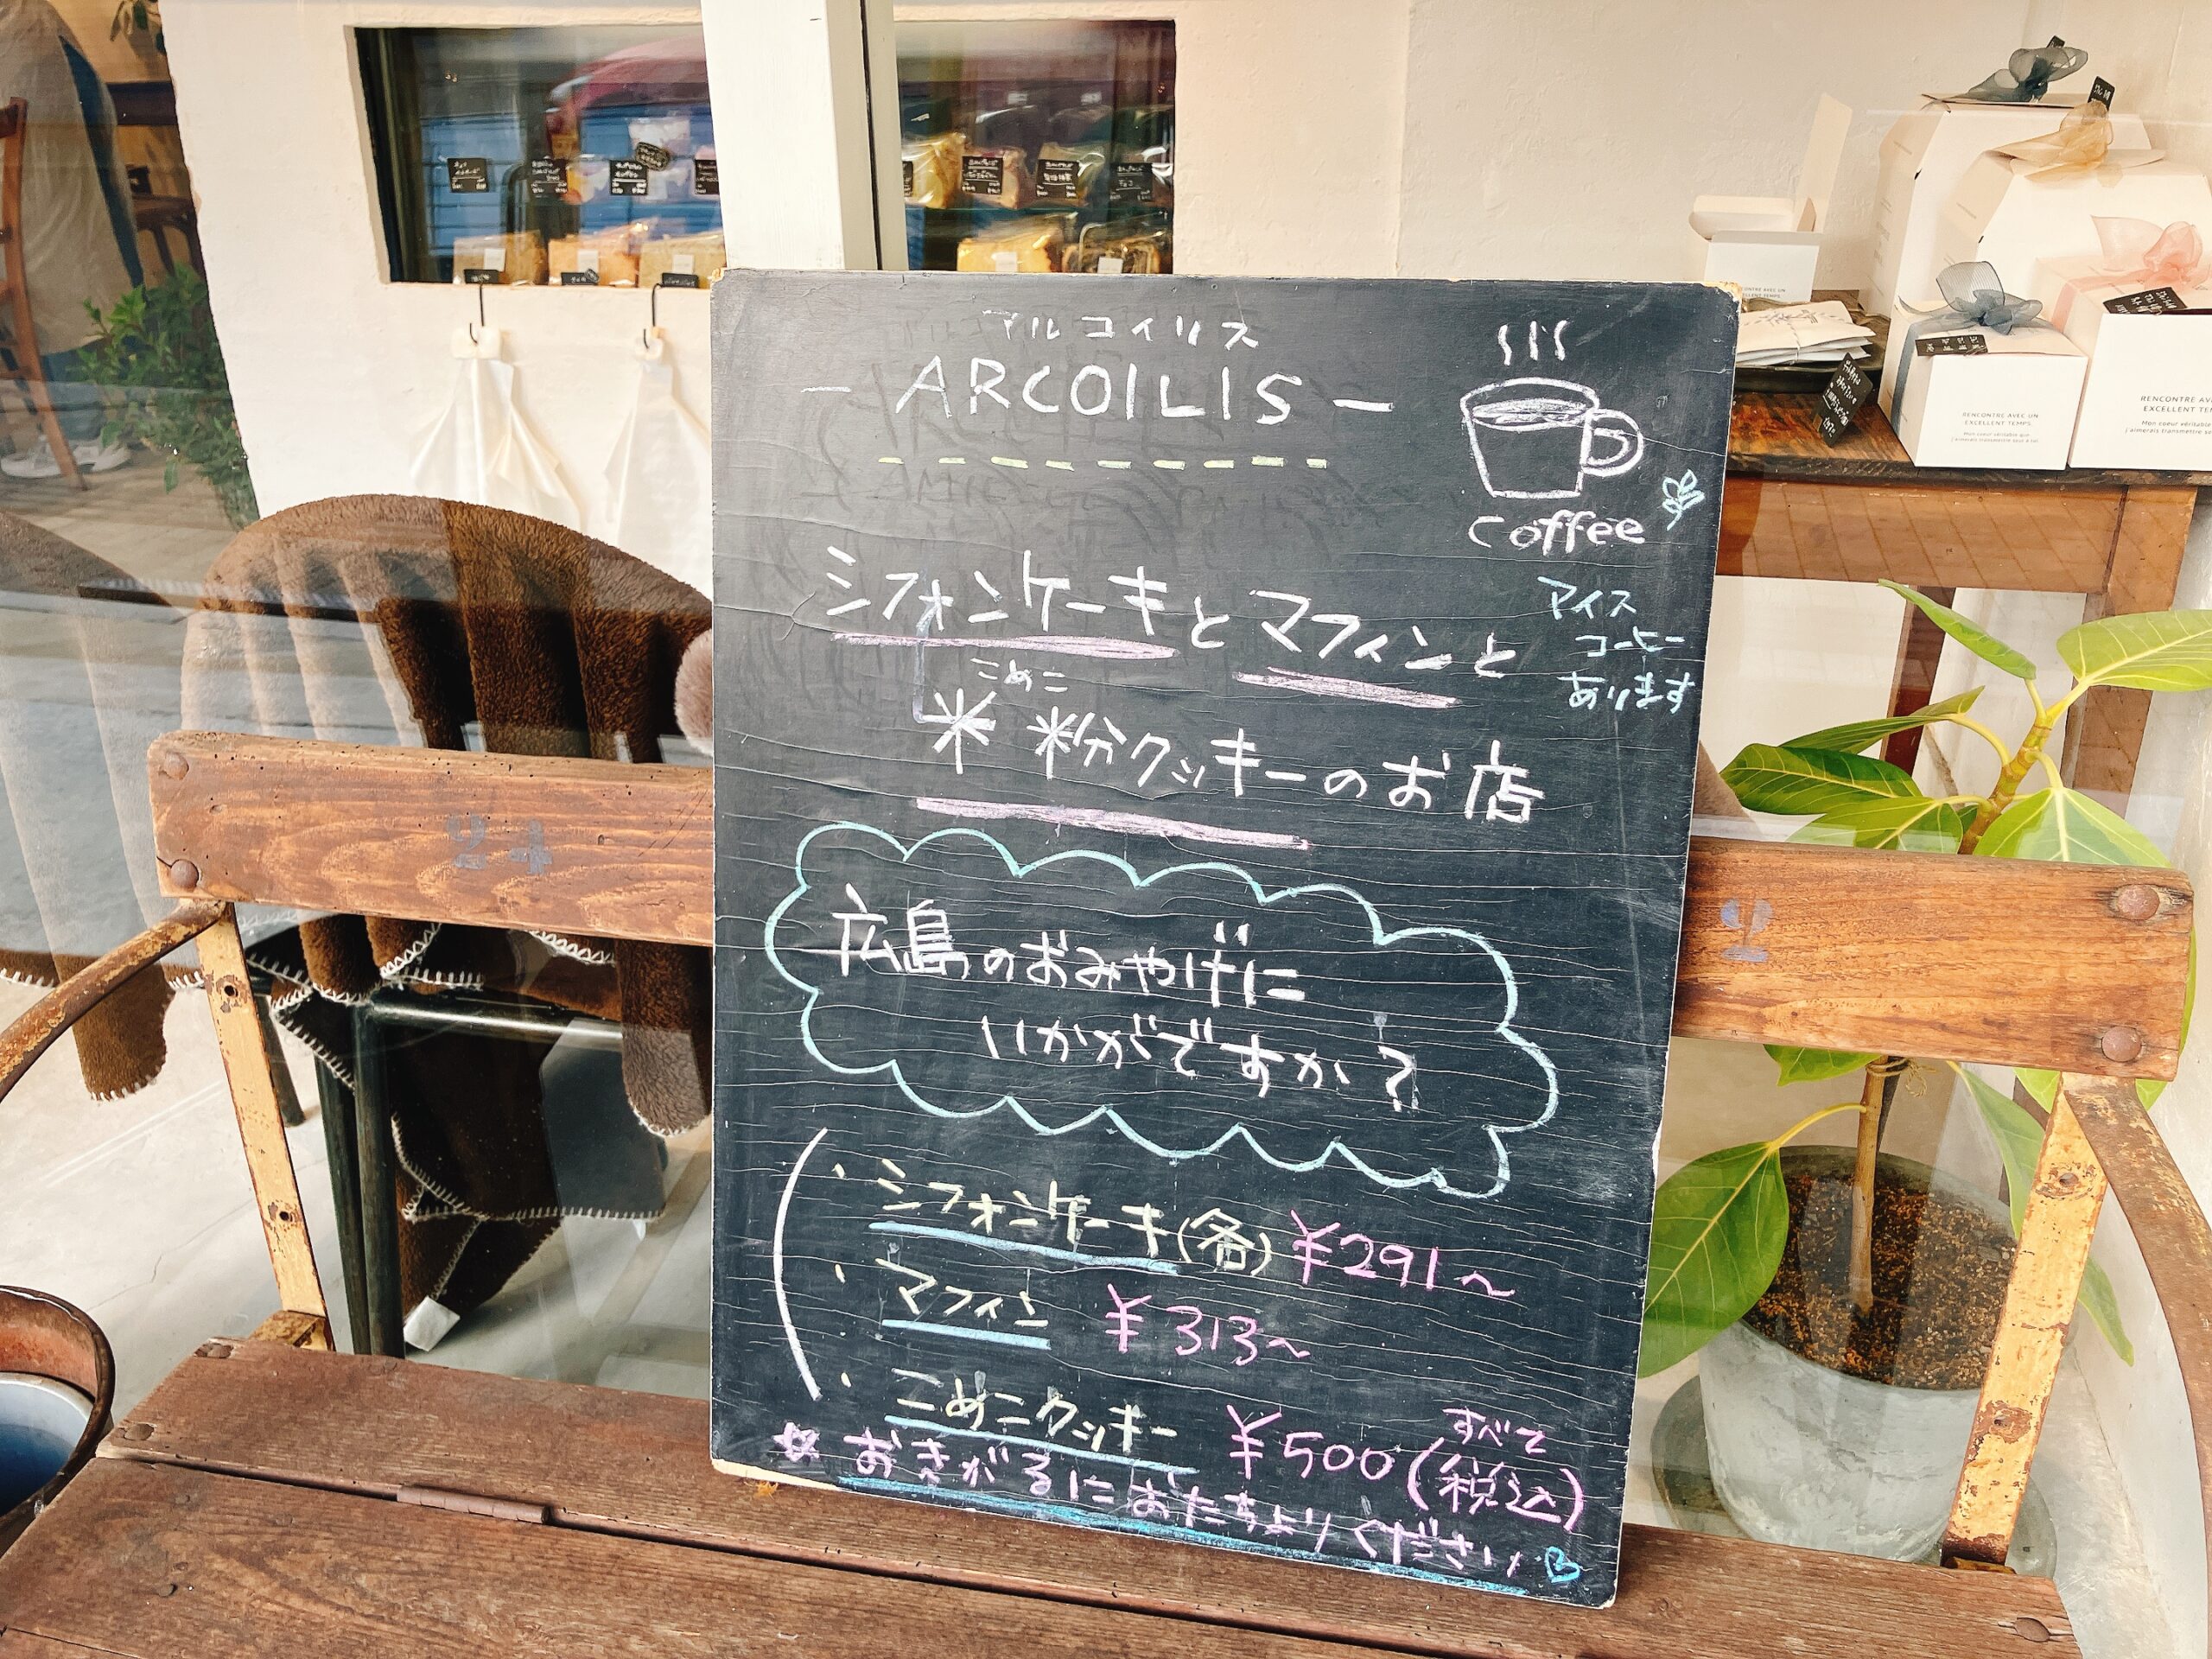 アルコイリス
- ARCOILIS -
coffee
アイス
コーヒー
あります
シフォンケーキとマフィンと
こめこ
米粉クッキーのお店
広島のおみやげに
いかがですか？
・シフォンケーキ(各) ¥291〜
・マフィン ¥313〜
・こめこクッキー ¥500 (すべて税込)
おきがるにおたちよりください
24
RENCONTRE AVEC UN
EXCELLENT TEMPS.
Mon coeur véritable que
j'aimerais transmettre pour a toi.